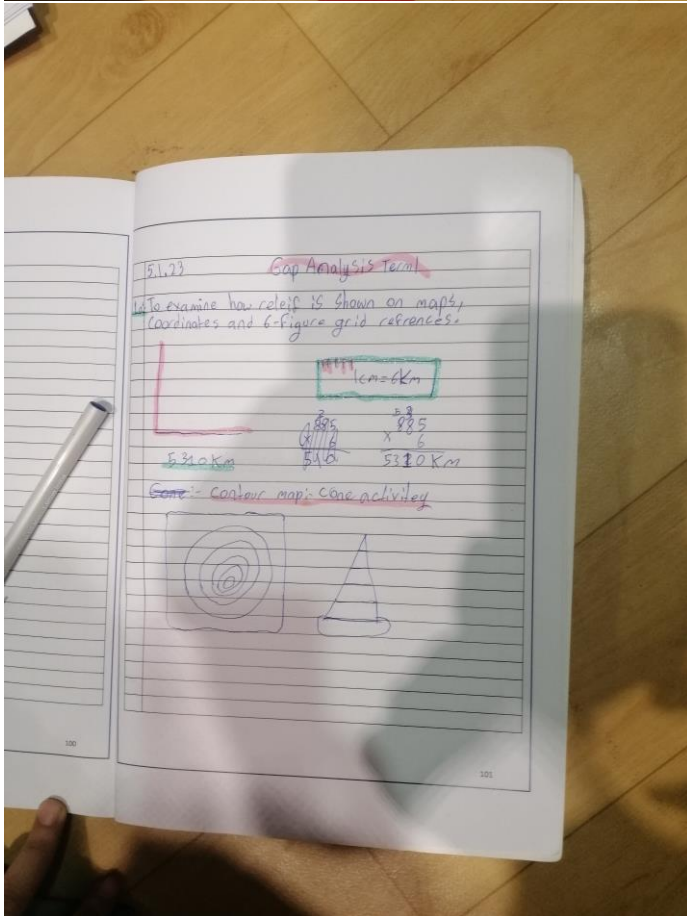 5.1.23 Gap Analysis Term 1
L.O To examine how releif is shown on maps,
Coordinates and 6-figure grid refrences.
1cm=6Km
885
x 6
5310 Km
5310 Km
:- contour map:- cone activitey
100
101